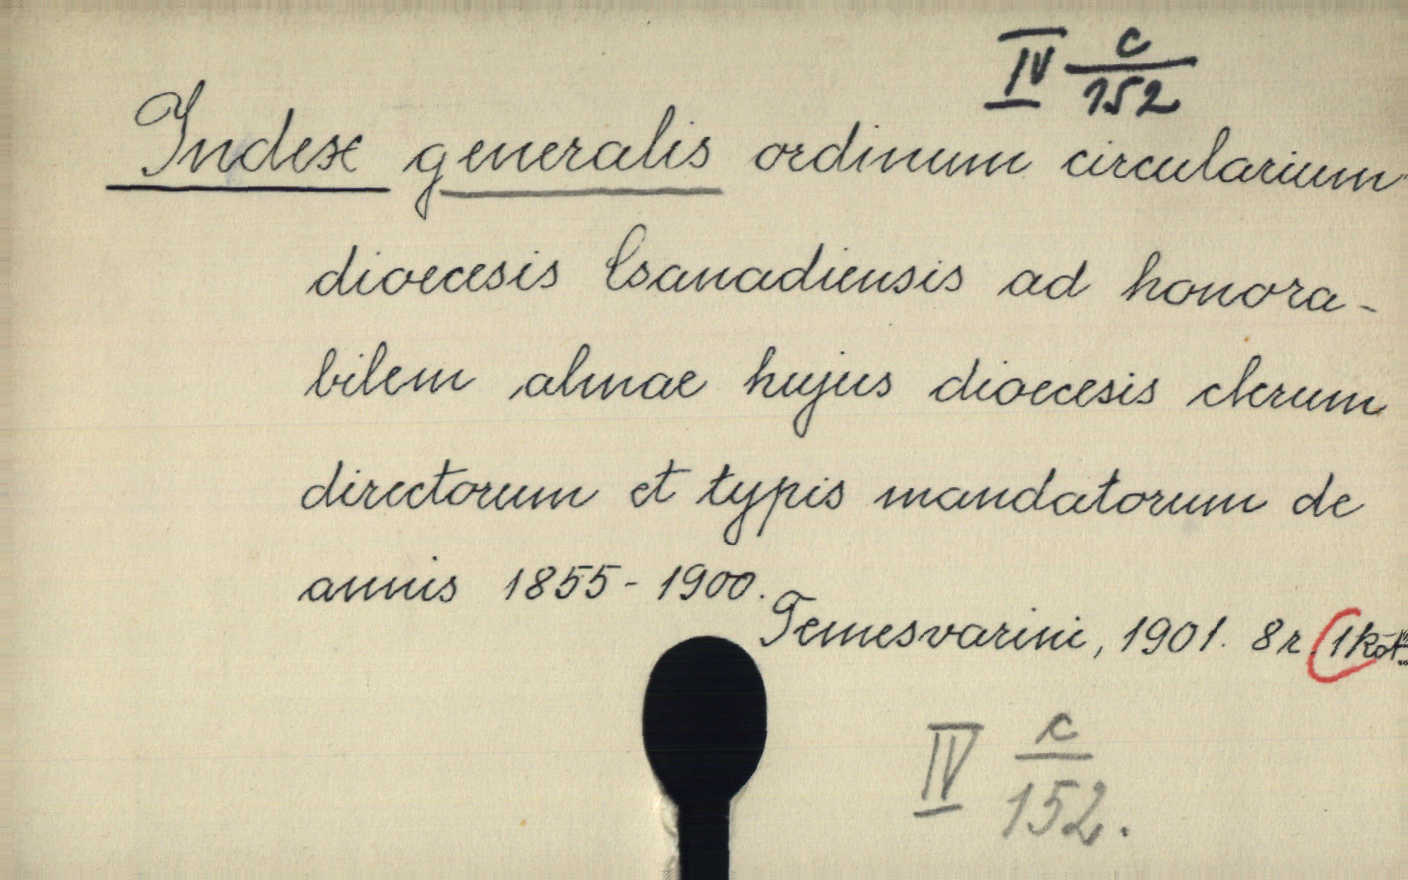 IV c/152
Index generalis ordinum circularium
dioecesis Csanadiensis ad honora-
bilem almae hujus dioecesis clerum
directorum et typis mandatorum de
annis 1855-1900.
Temesvarini, 1901. 8r. 1 köt
IV c/152.